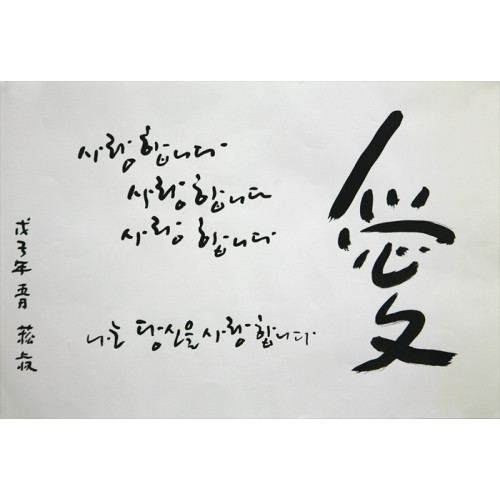 愛
사랑합니다
사랑합니다
사랑합니다
나는 당신을 사랑합니다
戊子年 五月